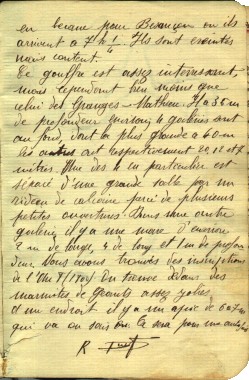 en bécane pour Besançon où ils
arrivent à 7h ! Ils sont éreintés
mais content.
Ce gouffre est assez intéressant,
mais cependant bien moins que
celui des Granges-Mathieu. Il a 36m
de profondeur environ 4 goulets sont
au fond, dont la plus grande a 60m
les autres ont respectivement 20, 12 et 7
mètres. Une des 4 en particulier est
séparé d'une grande salle par un
rideau de calcaire percé de plusieurs
petites ouvertures. Dans une autre
il y a une mare d'environ
2 m de large, 4 de long et 1 m de profon
deur. Nous avons trouvés des inscriptions
de On trouve dedans des
marmites de géants assez jolies
a un endroit il y a un de 6 a 7 m
qui va on sais où. Ce sera pour une autre fois
R